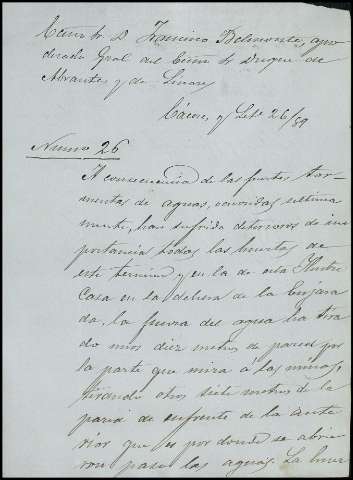 Excmo Sr. D. Belmonte, apo
derado Gral del Excmo Sr Duque de
Abrantes y de Linares
Cáceres y Set.e 26/89
Numero 26
A consecuencia de las fuertes tor-
mentas de aguas, ocurridas ultima
mente, han sufrido deterioros de im
portancia todas las huertas de
este termino y en la de esta Ilustre
Casa en la dehesa de la Enjara
da, la fuerza del agua ha tira
do unos diez metros de pared por
la parte que mira a las minas,
tirando otros siete metros de la
pared de enfrente de la ante
rior que es por donde se abrie
ron paso las aguas. La